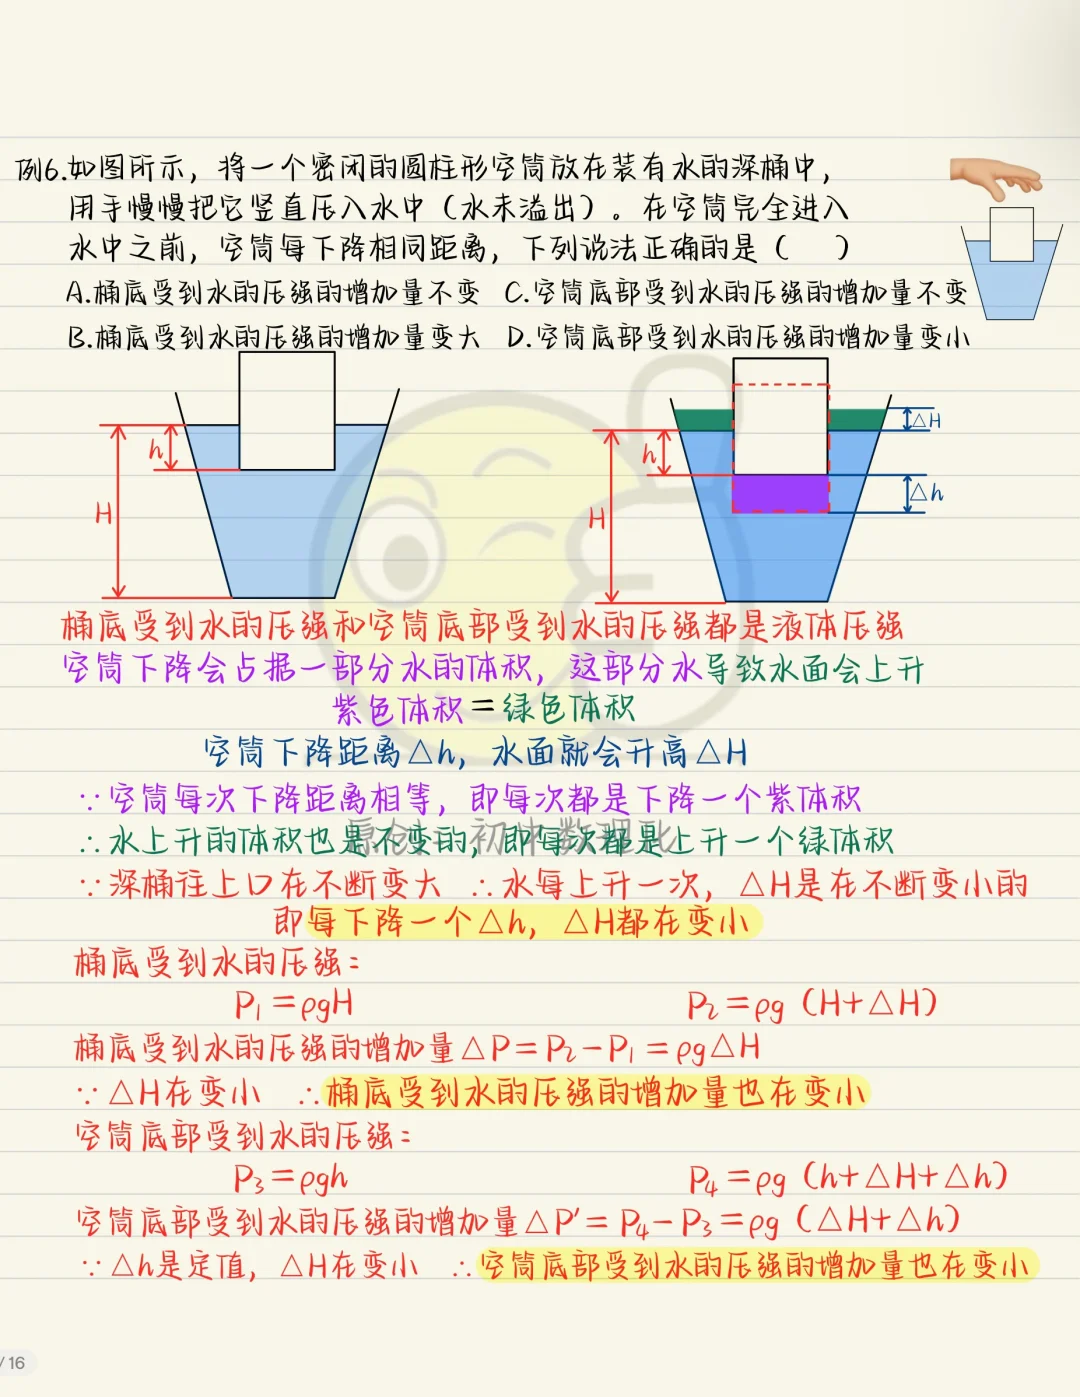 例6.如图所示，将一个密闭的圆柱形空筒放在装有水的深桶中，
用手慢慢把它竖直压入水中（水未溢出）。在空筒完全进入
水中之前，空筒每下降相同距离，下列说法正确的是（　）
A.桶底受到水的压强的增加量不变 C.空筒底部受到水的压强的增加量不变
B.桶底受到水的压强的增加量变大 D.空筒底部受到水的压强的增加量变小
h
H
△H
h
△h
H
桶底受到水的压强和空筒底部受到水的压强都是液体压强
空筒下降会占据一部分水的体积，这部分水导致水面会上升
紫色体积=绿色体积
空筒下降距离△h，水面就会升高△H
∵空筒每次下降距离相等，即每次都是下降一个紫体积
∴水上升的体积也是不变的，即每次都是上升一个绿体积
∵深桶往上口在不断变大 ∴水每上升一次，△H是在不断变小的
即每下降一个△h，△H都在变小
桶底受到水的压强：
P₁=ρgH P₂=ρg（H+△H）
桶底受到水的压强的增加量△P=P₂-P₁=ρg△H
∵△H在变小 ∴桶底受到水的压强的增加量也在变小
空筒底部受到水的压强：
P₃=ρgh P₄=ρg（h+△H+△h）
空筒底部受到水的压强的增加量△P′=P₄-P₃=ρg（△H+△h）
∵△h是定值，△H在变小 ∴空筒底部受到水的压强的增加量也在变小
/16